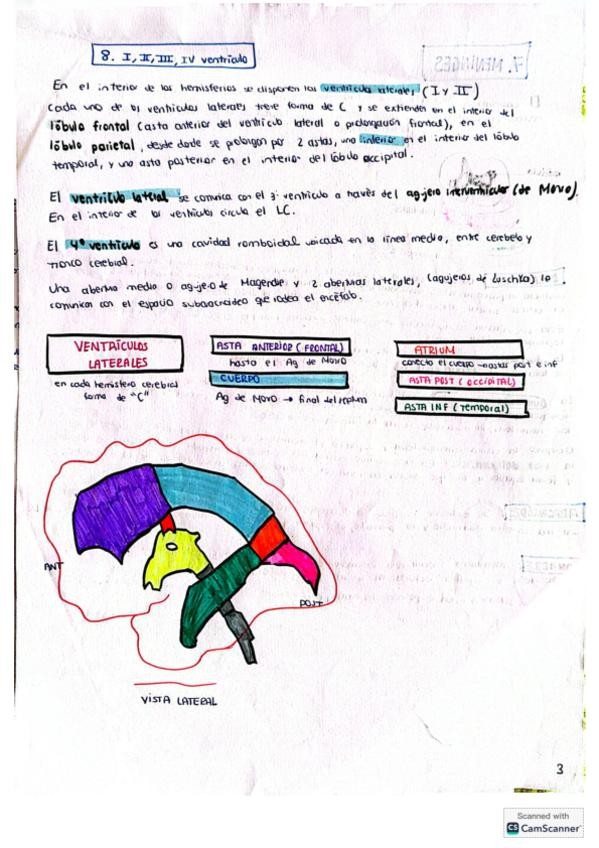 8. I, II, III, IV ventrículo
7. MENINGES
En el interior de los hemisferios se disponen los ventrículos laterales (I y II)
Cada uno de los ventrículos laterales tiene forma de C y se extienden en el interior del
lóbulo frontal (asta anterior del ventrículo lateral o prolongación frontal), en el
lóbulo parietal, desde donde se prolongan por 2 astas, una inferior en el interior del lóbulo
temporal, y una asta posterior en el interior del lóbulo occipital.
El ventrículo lateral se comunica con el 3º ventrículo a través del agujero interventricular (de Monro).
En el interior de los ventrículos circula el LC.
El 4º ventrículo es una cavidad romboidal ubicada en la línea media, entre cerebelo y
tronco cerebral.
Una abertura medio o agujero de Magendie y 2 aberturas laterales, (agujeros de Luschka) lo
comunican con el espacio subaracnoideo que rodea el encéfalo.
VENTRÍCULOS
LATERALES
en cada hemisferio cerebral
forma de "C"
ASTA ANTERIOR (FRONTAL)
hasta el Ag de Monro
CUERPO
Ag de MONRO → final del septum
ATRIUM
conecta el cuerpo → astas post e inf
ASTA POST (OCCIPITAL)
ASTA INF (Temporal)
ANT
POST
VISTA LATERAL
3
Scanned with
CS CamScanner